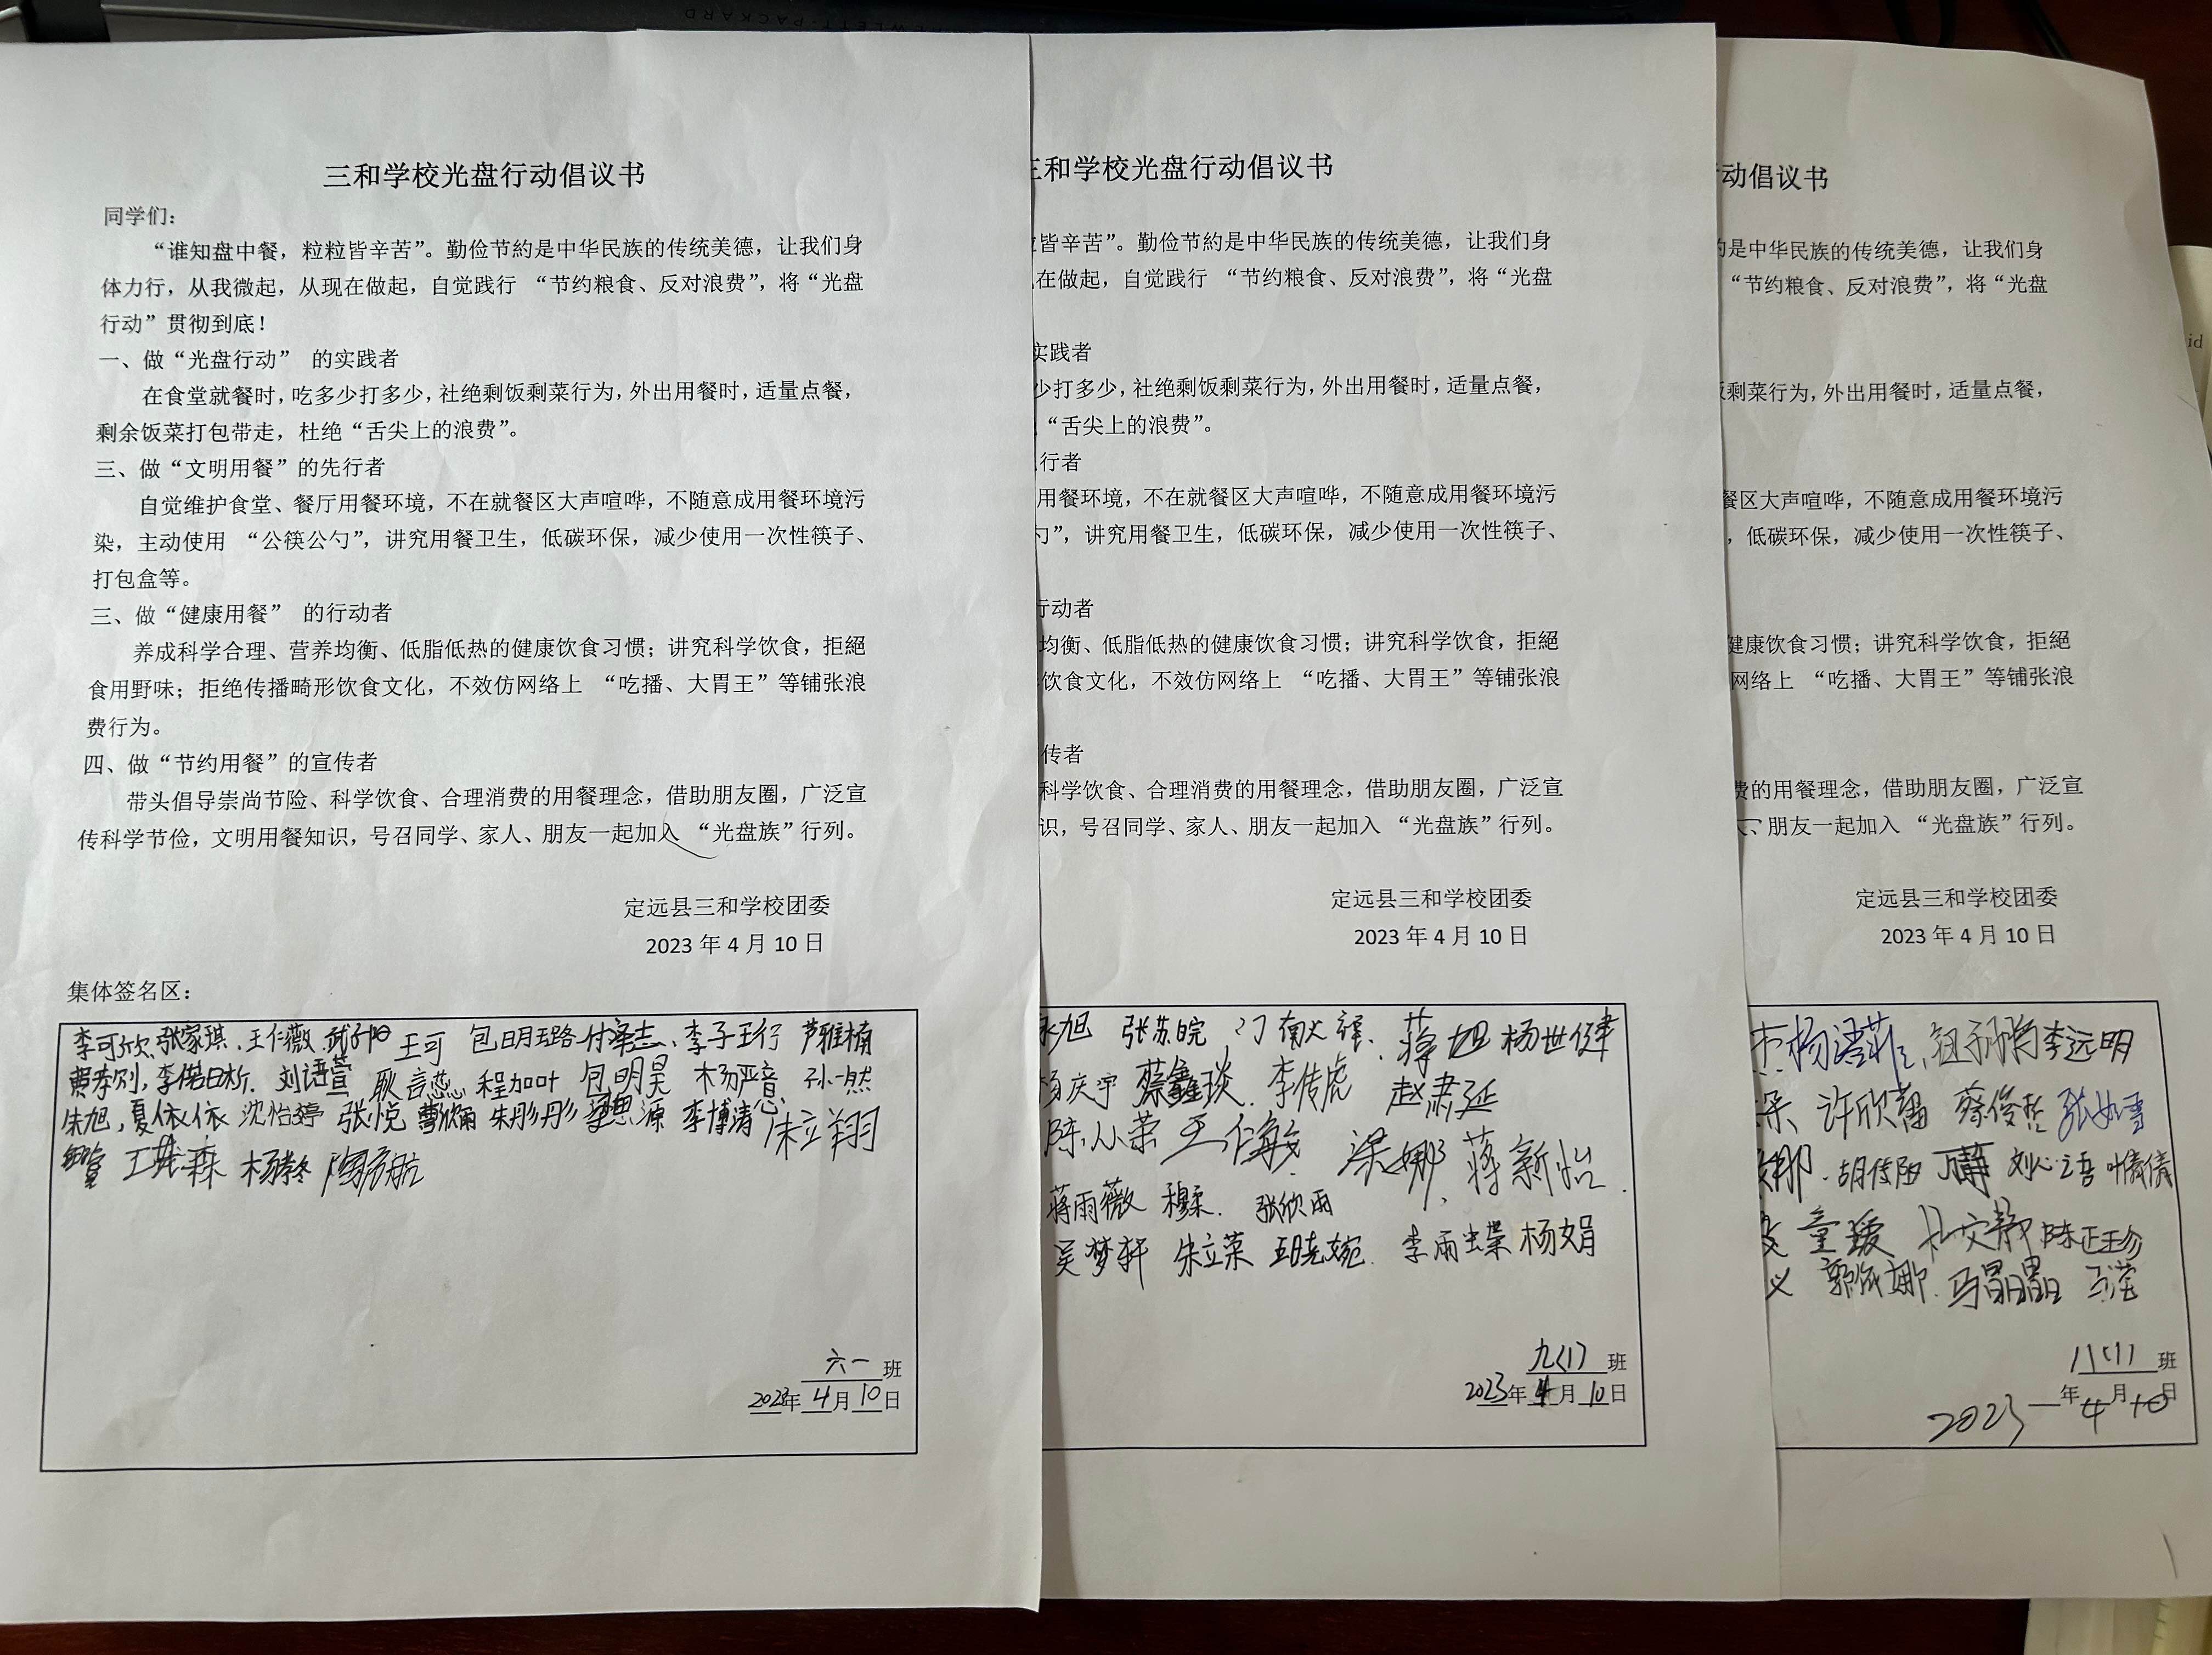 HEWLETT-PACKARD
三和学校光盘行动倡议书
同学们：
“谁知盘中餐，粒粒皆辛苦”。勤俭节約是中华民族的传统美德，让我们身
体力行，从我微起，从现在做起，自觉践行 “节约粮食、反对浪费”，将“光盘
行动”贯彻到底！
一、做“光盘行动” 的实践者
在食堂就餐时，吃多少打多少，社绝剩饭剩菜行为，外出用餐时，适量点餐，
剩余饭菜打包带走，杜绝“舌尖上的浪费”。
三、做“文明用餐”的先行者
自觉维护食堂、餐厅用餐环境，不在就餐区大声喧哗，不随意成用餐环境污
染，主动使用 “公筷公勺”，讲究用餐卫生，低碳环保，减少使用一次性筷子、
打包盒等。
三、做“健康用餐” 的行动者
养成科学合理、营养均衡、低脂低热的健康饮食习惯；讲究科学饮食，拒絕
食用野味；拒绝传播畸形饮食文化，不效仿网络上 “吃播、大胃王”等铺张浪
费行为。
四、做“节约用餐”的宣传者
带头倡导崇尚节险、科学饮食、合理消费的用餐理念，借助朋友圈，广泛宣
传科学节俭，文明用餐知识，号召同学、家人、朋友一起加入 “光盘族”行列。
定远县三和学校团委
2023 年 4 月 10 日
集体签名区：
李可欣 张家琪 王仁薇 王可 包明璐 付泽志 李子珩 芦雅楠
刘语萱 耿言蕊 程加叶 包明昊 杨严意 孙一然
朱旭，夏依依 沈怡婷 张悦 曹欣雨 朱彤彤 李博清 朱立翔
杨梦冬
六一班
2023年 4月 10日
三和学校光盘行动倡议书
皆辛苦”。勤俭节約是中华民族的传统美德，让我们身
在做起，自觉践行 “节约粮食、反对浪费”，将“光盘
实践者
少打多少，社绝剩饭剩菜行为，外出用餐时，适量点餐，
“舌尖上的浪费”。
行者
用餐环境，不在就餐区大声喧哗，不随意成用餐环境污
勺”，讲究用餐卫生，低碳环保，减少使用一次性筷子、
行动者
均衡、低脂低热的健康饮食习惯；讲究科学饮食，拒絕
饮食文化，不效仿网络上 “吃播、大胃王”等铺张浪
传者
科学饮食、合理消费的用餐理念，借助朋友圈，广泛宣
识，号召同学、家人、朋友一起加入 “光盘族”行列。
定远县三和学校团委
2023 年 4 月 10 日
张苏皖 蒋旭 杨世健
杨庆宇 蔡鑫琰 李传虎 赵肃延
陈从荣 王仁敏 梁娜 蒋新怡
蒋雨薇 穆柔 张欣雨
吴梦轩 朱立荣 李雨蝶 杨娟
九(1)班
2023年 4月 10日
动倡议书
是中华民族的传统美德，让我们身
“节约粮食、反对浪费”，将“光盘
剩菜行为，外出用餐时，适量点餐，
餐区大声喧哗，不随意成用餐环境污
，低碳环保，减少使用一次性筷子、
健康饮食习惯；讲究科学饮食，拒絕
网络上 “吃播、大胃王”等铺张浪
费的用餐理念，借助朋友圈，广泛宣
、朋友一起加入 “光盘族”行列。
定远县三和学校团委
2023 年 4 月 10 日
李远明
许欣蕾 张如雪
娜 胡俊阳 刘心语 叶倩倩
童瑗 杜文静 陈正珍
义 郭依娜 马晶晶 王滢
八(1)班
2023年4月10日
id